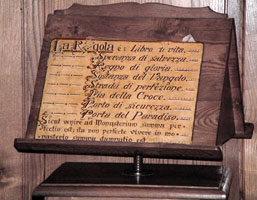 La Regola è: Libro di vita,
Speranza di salvezza,
Pegno di gloria,
Sostanza del Vangelo,
Strada di perfezione,
Via della Croce,
Porto di sicurezza,
Porta del Paradiso.
venire ad Monasterium summa per-
fectio est: at non perfecte vivere in mo-
nasterio summa damnatio est